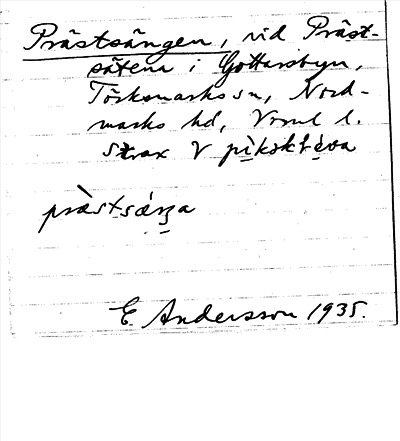 Prästsängen, vid Präst-
sätern i Gottarsbyn,
Töcksmarks sn, Nord-
marks hd, Vrml l.
strax V
prästsäŋa
E. Andersson 1935.